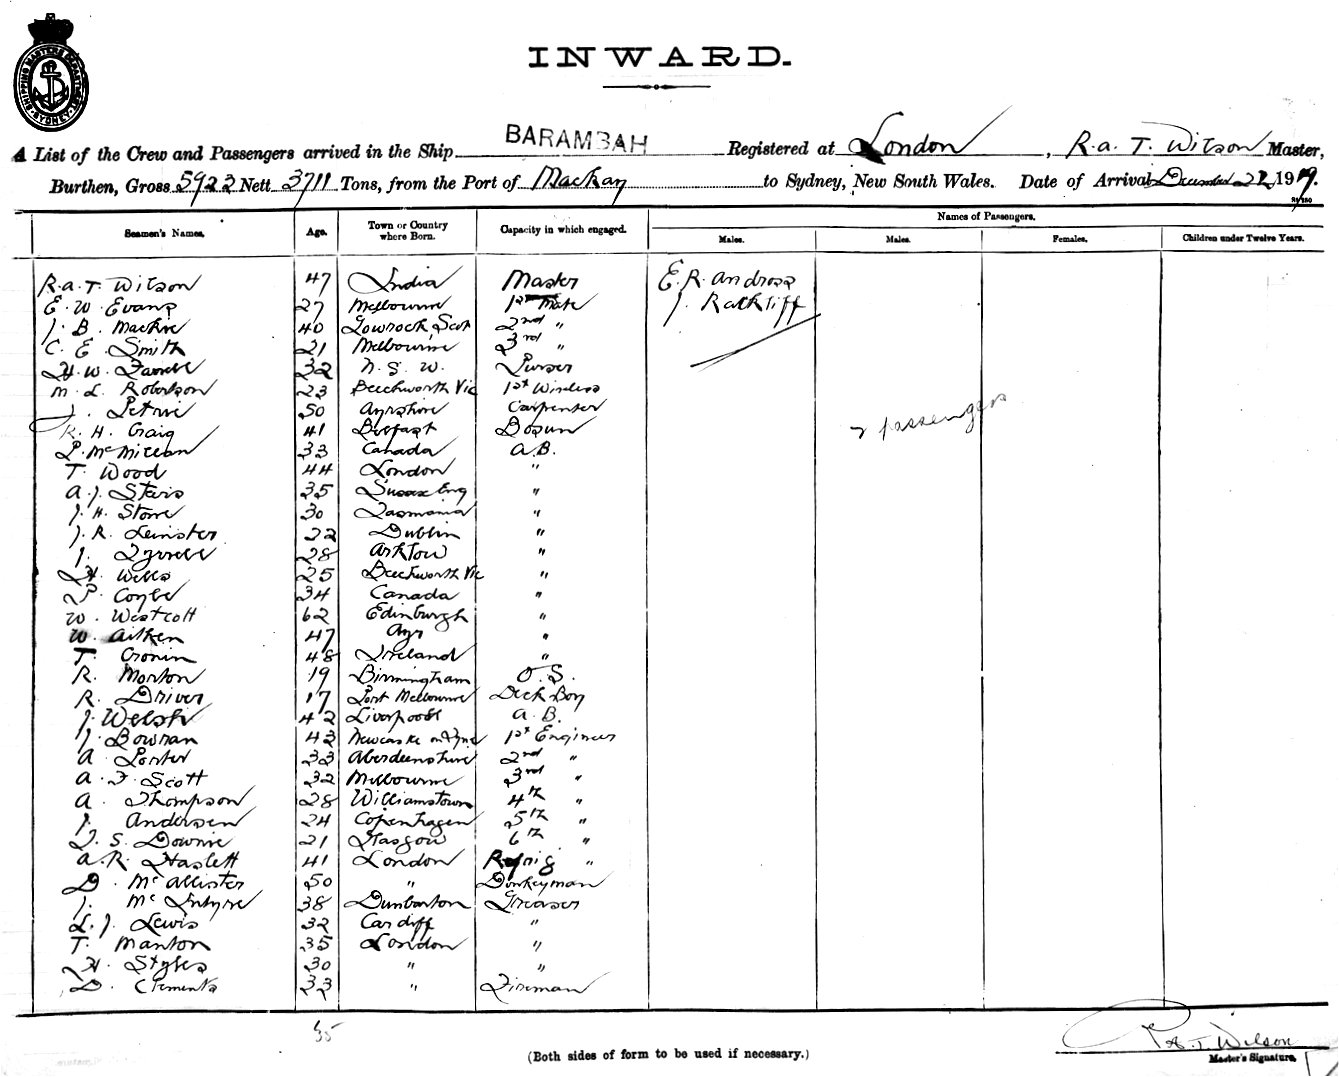 SHIPPING MASTERS DEPARTMENT SYDNEY
INWARD.
A List of the Crew and Passengers arrived in the Ship BARAMBAH Registered at London, R.a. T. Wilson Master,
Burthen, Gross 5923 Nett 3711 Tons, from the Port of Mackay to Sydney, New South Wales. Date of Arrival December 22 1919.
Seamen's Names. Age. Town or Country where Born. Capacity in which engaged. Names of Passengers.
Males. Males. Females. Children under Twelve Years.
R.a.T. Wilson 47 India Master E. R. Andross
E. W. Evans 27 Melbourne 1st Mate J. Ratkliff
J. B. Mackie 40 Gowrock Scot 2nd "
C. E. Smith 21 Melbourne 3rd "
H. W. Farrell 32 N. S. W. Purser
M. L. Robertson 23 Beechworth Vic 1st Wireless
J. Petrie 50 Ayrshire Carpenter
R. H. Craig 41 Belfast Bosun
P. McMillan 33 Canada A.B.
2 passengers
T. Wood 44 London "
A. J. Stairs 35 Sussex Eng "
J. H. Stone 30 Tasmania "
J. R. Leinster 22 Dublin "
J. Tyrrell 28 Arklow "
H. Wells 25 Beechworth Vic "
P. Coyle 34 Canada "
W. Westcott 62 Edinburgh "
W. Aitken 47 Ayr "
T. Cronin 48 Ireland "
R. Morton 19 Birmingham O.S.
R. Driver 17 Port Melbourne Deck Boy
J. Welsh 42 Liverpool A.B.
J. Bowran 43 Newcastle on Tyne 1st Engineer
A Porter 33 Aberdeenshire 2nd "
A. F. Scott 32 Melbourne 3rd "
A. Thompson 28 Williamstown 4th "
J. Andersen 24 Copenhagen 5th "
T. S. Downie 21 Glasgow 6th "
A. R. Haslett 41 London Refrig "
D. McAllister 50 " Donkeyman
J. McIntyre 38 Dunbarton Greaser
L. J. Lewis 32 Cardiff "
T. Manton 35 London "
H. Styles 30 " "
D. Clements 33 " Fireman
35
R.A.T. Wilson
(Both sides of form to be used if necessary.)
Master's Signature.